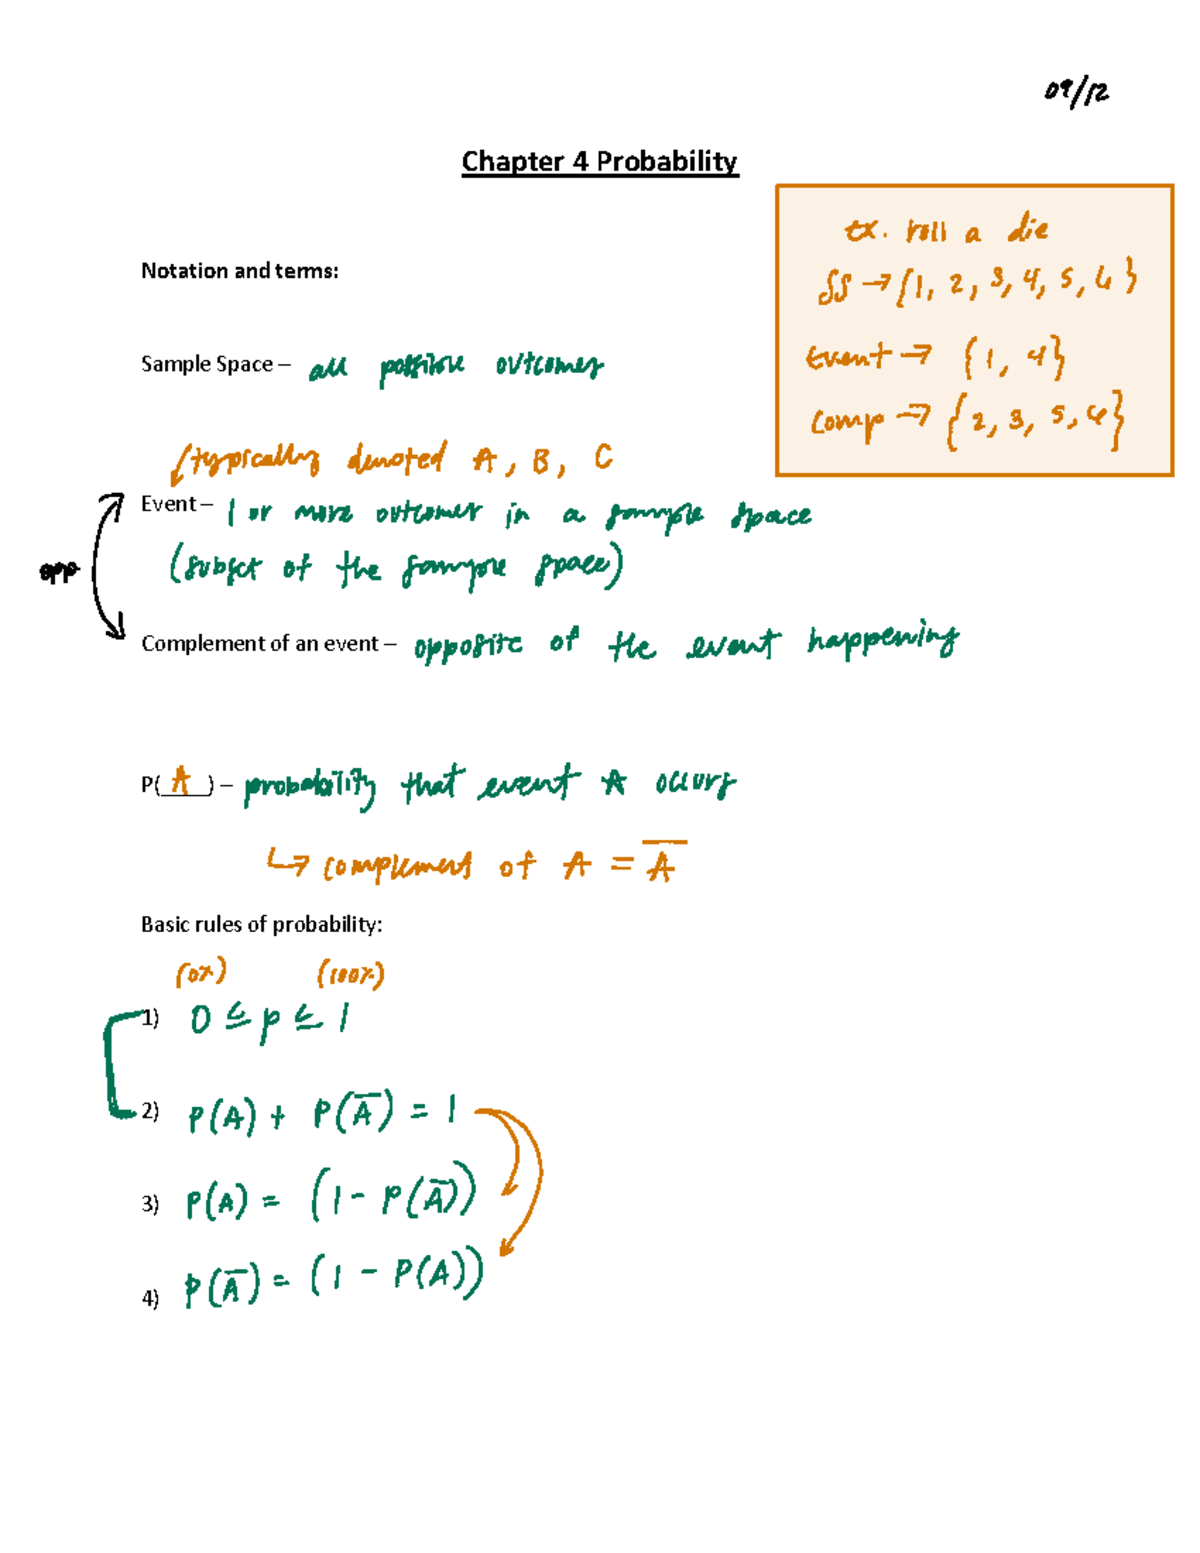 09/12
Chapter 4 Probability
ex. roll a die
SS → {1, 2, 3, 4, 5, 6}
Event → {1, 4}
comp → {2, 3, 5, 6}
Notation and terms:
Sample Space – all possible outcomes
typically denoted A, B, C
Event – 1 or more outcomes in a sample space
(subset of the sample space)
opp
Complement of an event – opposite of the event happening
P( A ) – probability that event A occurs
↳ complement of A = A̅
Basic rules of probability:
(0%) (100%)
1) 0 ≤ p ≤ 1
2) P(A) + P(A̅) = 1
3) P(A) = (1 - P(A̅))
4) P(A̅) = (1 - P(A))